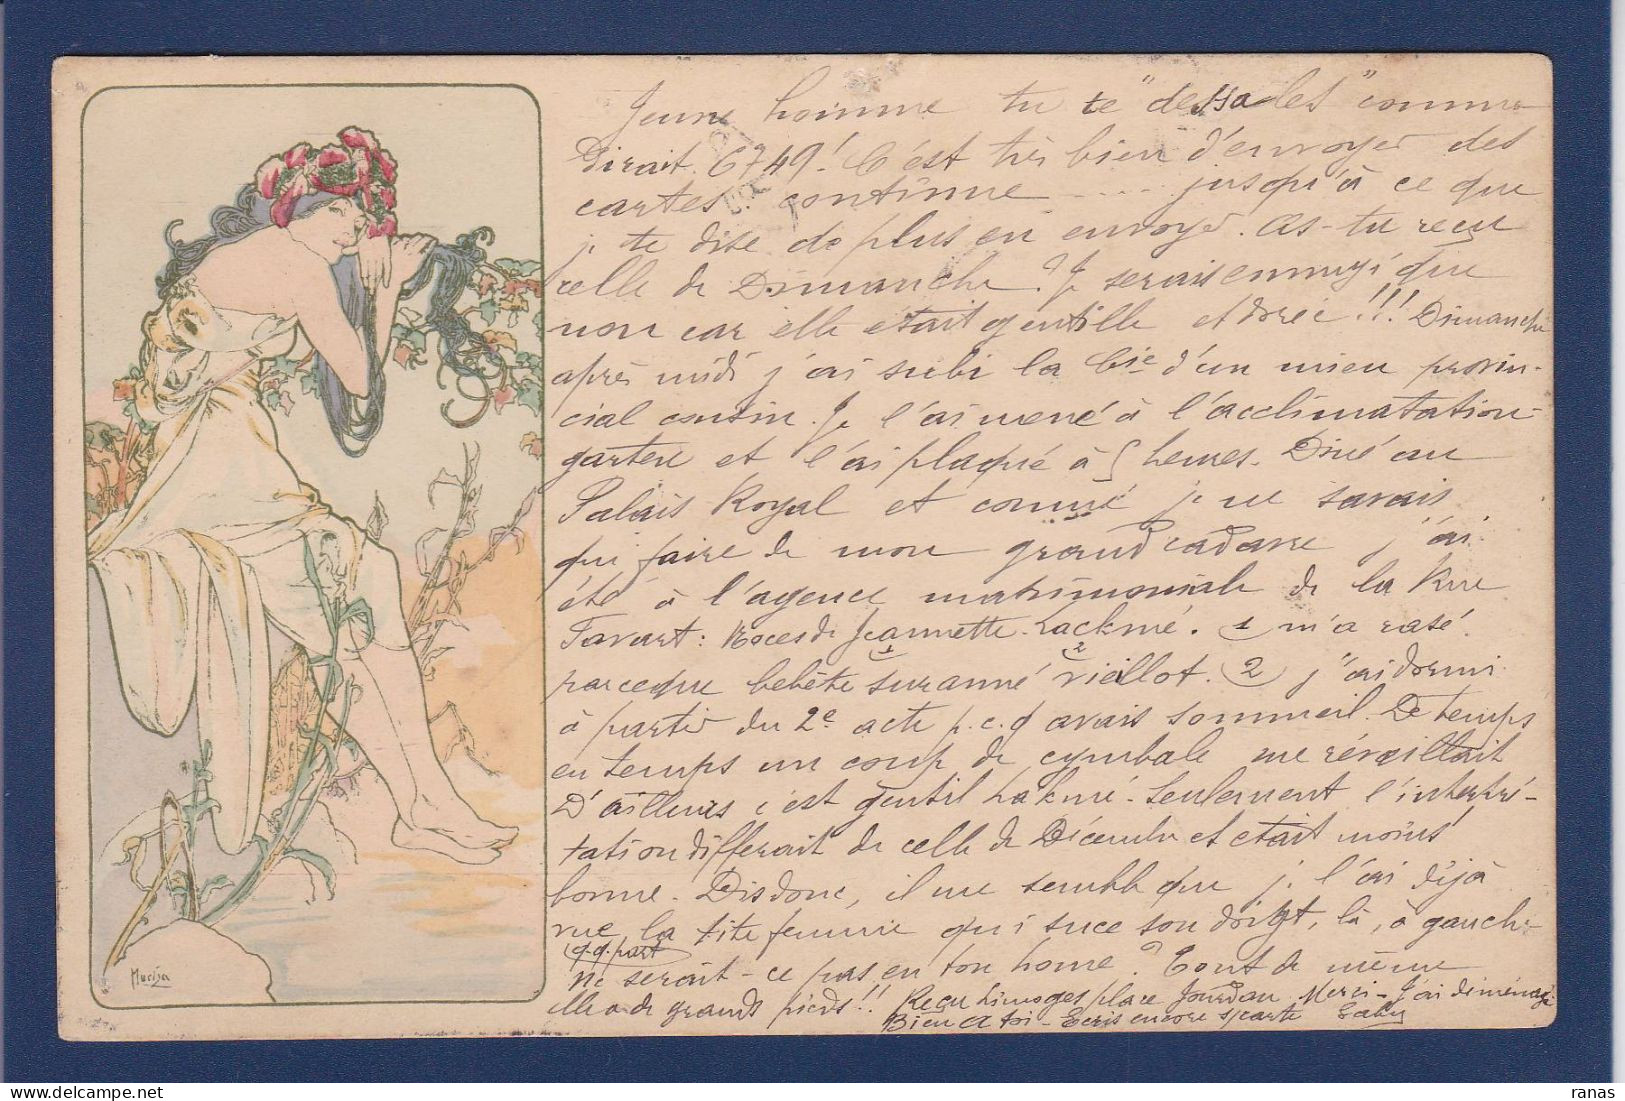 Jeune homme tu te "dessales" comme
Dirait 6749! C'est très bien d'envoyer des
cartes continue .... jusqu'à ce que
je te dise de plus en envoyer. As-tu reçu
celle de Dimanche? Je serais ennuyé que
non car elle etait gentille et dorée!!! Dimanche
après midi j'ai subi la Cie d'un mien provin-
cial cousin. Je l'ai mené à l'acclimatation-
garten et l'ai plaqué à 5 heures. Diné au
Palais Royal et comme je ne savais
que faire de mon grand cadavre j'ai
été à l'agence matrimoniale de la Rue
Favart: Noces de Jeannette. Lackmé. 1 m'a rasé
1 2
parceque bebête suranné vieillot. 2 j'ai dormi
à partir du 2e acte p.c.q avais sommeil. De temps
en temps un coup de cymbale me réveillait
D'ailleurs c'est gentil Lakmé. Seulement l'interpré-
tation differait de celle de Décembre et etait moins
bonne. Dis donc, il me semble que je l'ai déjà
vue la tite femme qui suce son doigt, là, à gauche
q.q. part
ne serait-ce pas en ton home? Tout de même
elle a de grands pieds!! Reçu Limoges place Jourdan. Merci - J'ai déménagé
Bien a toi - Ecris encore s/carte
Mucha
ranas